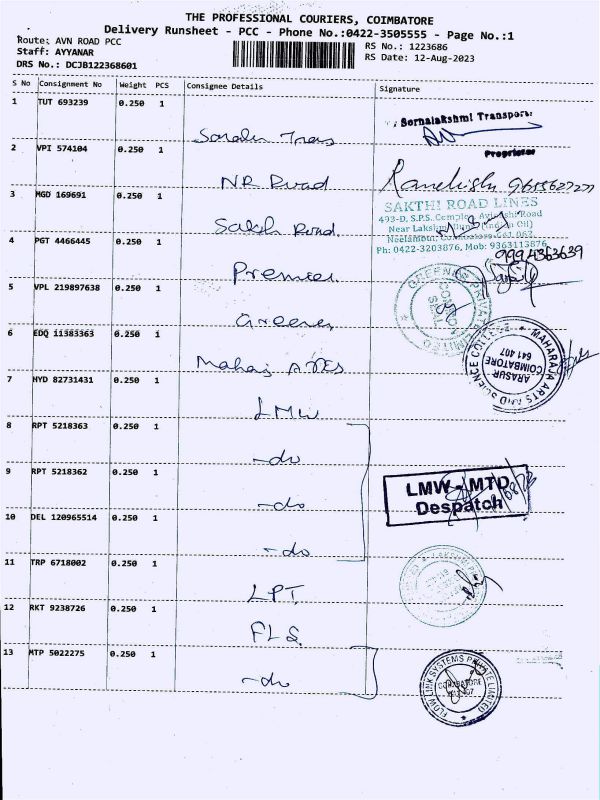 THE PROFESSIONAL COURIERS, COIMBATORE
Delivery Runsheet - PCC - Phone No.:0422-3505555 - Page No.:1
Route: AVN ROAD PCC
Staff: AYYANAR
DRS No.: DCJB122368601
RS No.: 1223686
RS Date: 12-Aug-2023
S No Consignment No Weight PCS Consignee Details Signature
1 TUT 693239 0.250 1
Sornalakshmi Transport
Proprietor
2 VPI 574104 0.250 1 NR Road
9655627277
3 MGD 169691 0.250 1 Sakthi Road.
SAKTHI ROAD LINES
493-D, S.P.S. Complex, Avinashi Road
Near Lakshmi (Indian Oil)
Neelambur, Coimbatore-641 062
Ph: 0422-3203876, Mob: 9363113876
4 PGT 4466445 0.250 1 Premier.
9994363639
5 VPL 219897638 0.250 1 Greenen
GREENEN PRIVATE LIMITED
COMMON SEAL
6 EDQ 11383363 0.250 1 Maharaj
MAHARAJA ARTS AND SCIENCE COLLEGE
ARASUR
COIMBATORE
641 407
7 HYD 82731431 0.250 1 LMW
8 RPT 5218363 0.250 1 -do
9 RPT 5218362 0.250 1 -do
LMW - MTD
Despatch
10 DEL 120965514 0.250 1 -do
11 TRP 6718002 0.250 1 LPT
12 RKT 9238726 0.250 1 FLS
13 MTP 5022275 0.250 1 -do
FLOW LINK SYSTEMS PRIVATE LIMITED
COIMBATORE